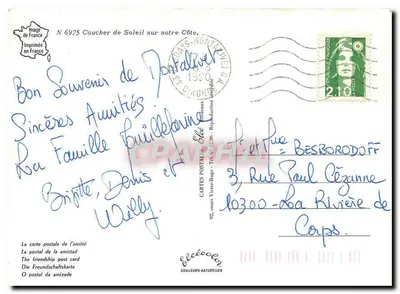 Image
de France
Imprimée
en France
N 6975 Coucher de Soleil sur notre Côte.
Bon Souvenir de Montalivet
Sincères Amitiés
La Famille
Brigitte, Denis et
Willy
La carte postale de l'amitié
La postal de la amistad
The friendship post card
Die Freundschaftskarte
O postal da amizade
Elcécolor
COULEURS NATURELLES
2,10
et Mme BESBORODOFF
3, Rue Paul Cézanne
10300 - La Rivière de
Corps.